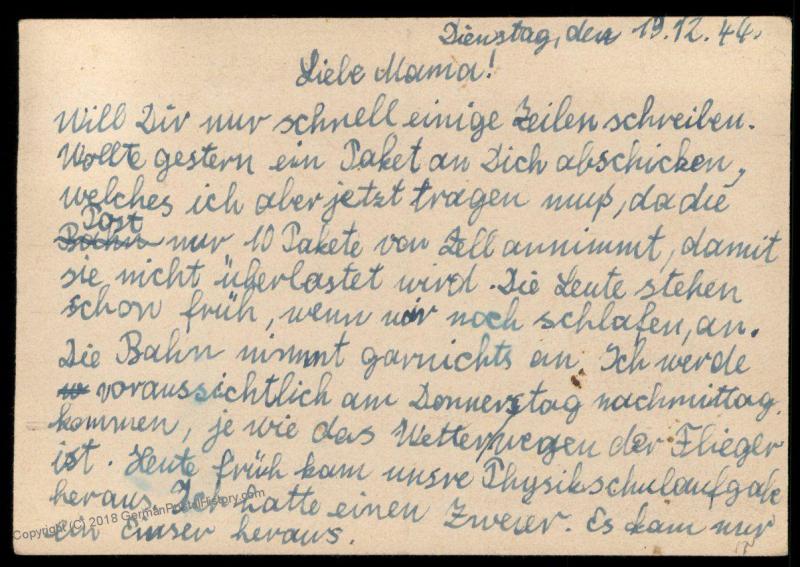 Dienstag, den 19.12.44.
Liebe Mama!
Will Dir nur schnell einige Zeilen schreiben.
Wollte gestern ein Paket an Dich abschicken,
welches ich aber jetzt tragen muß, da die
Post
Bahn nur 10 Pakete von Zell annimmt, damit
sie nicht überlastet wird. Die Leute stehen
schon früh, wenn wir noch schlafen, an.
Die Bahn nimmt garnichts an. Ich werde
voraussichtlich am Donnerstag nachmittag
kommen, je wie das Wetter wegen der Flieger
ist. Heute früh kam unsre Physikschulaufgabe
heraus. Ich hatte einen Zweier. Es kam nur
ein Einser heraus.
Copyright (C) 2018 GermanPostalHistory.com